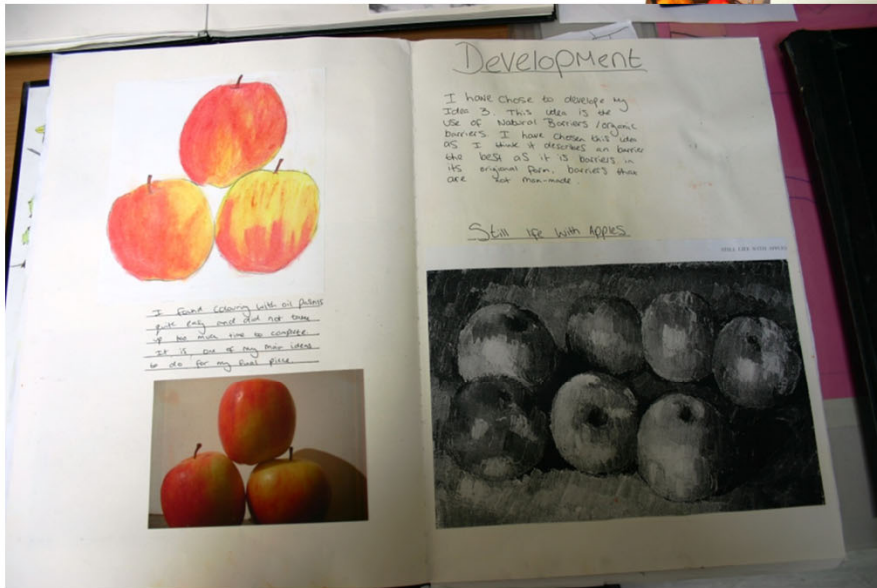 I found colouring with oil pastels
quite easy and did not take
up too much time to complete
It is one of my main ideas
to do for my final piece.
Development
I have chose to develope my
Idea 3. This idea is the
use of Natural Barriers /organic
barriers. I have chosen this idea
as I think it describes an barrier
the best as it is barriers in
its original form, barriers that
are not man-made.
Still life With Apples
STILL LIFE WITH APPLES